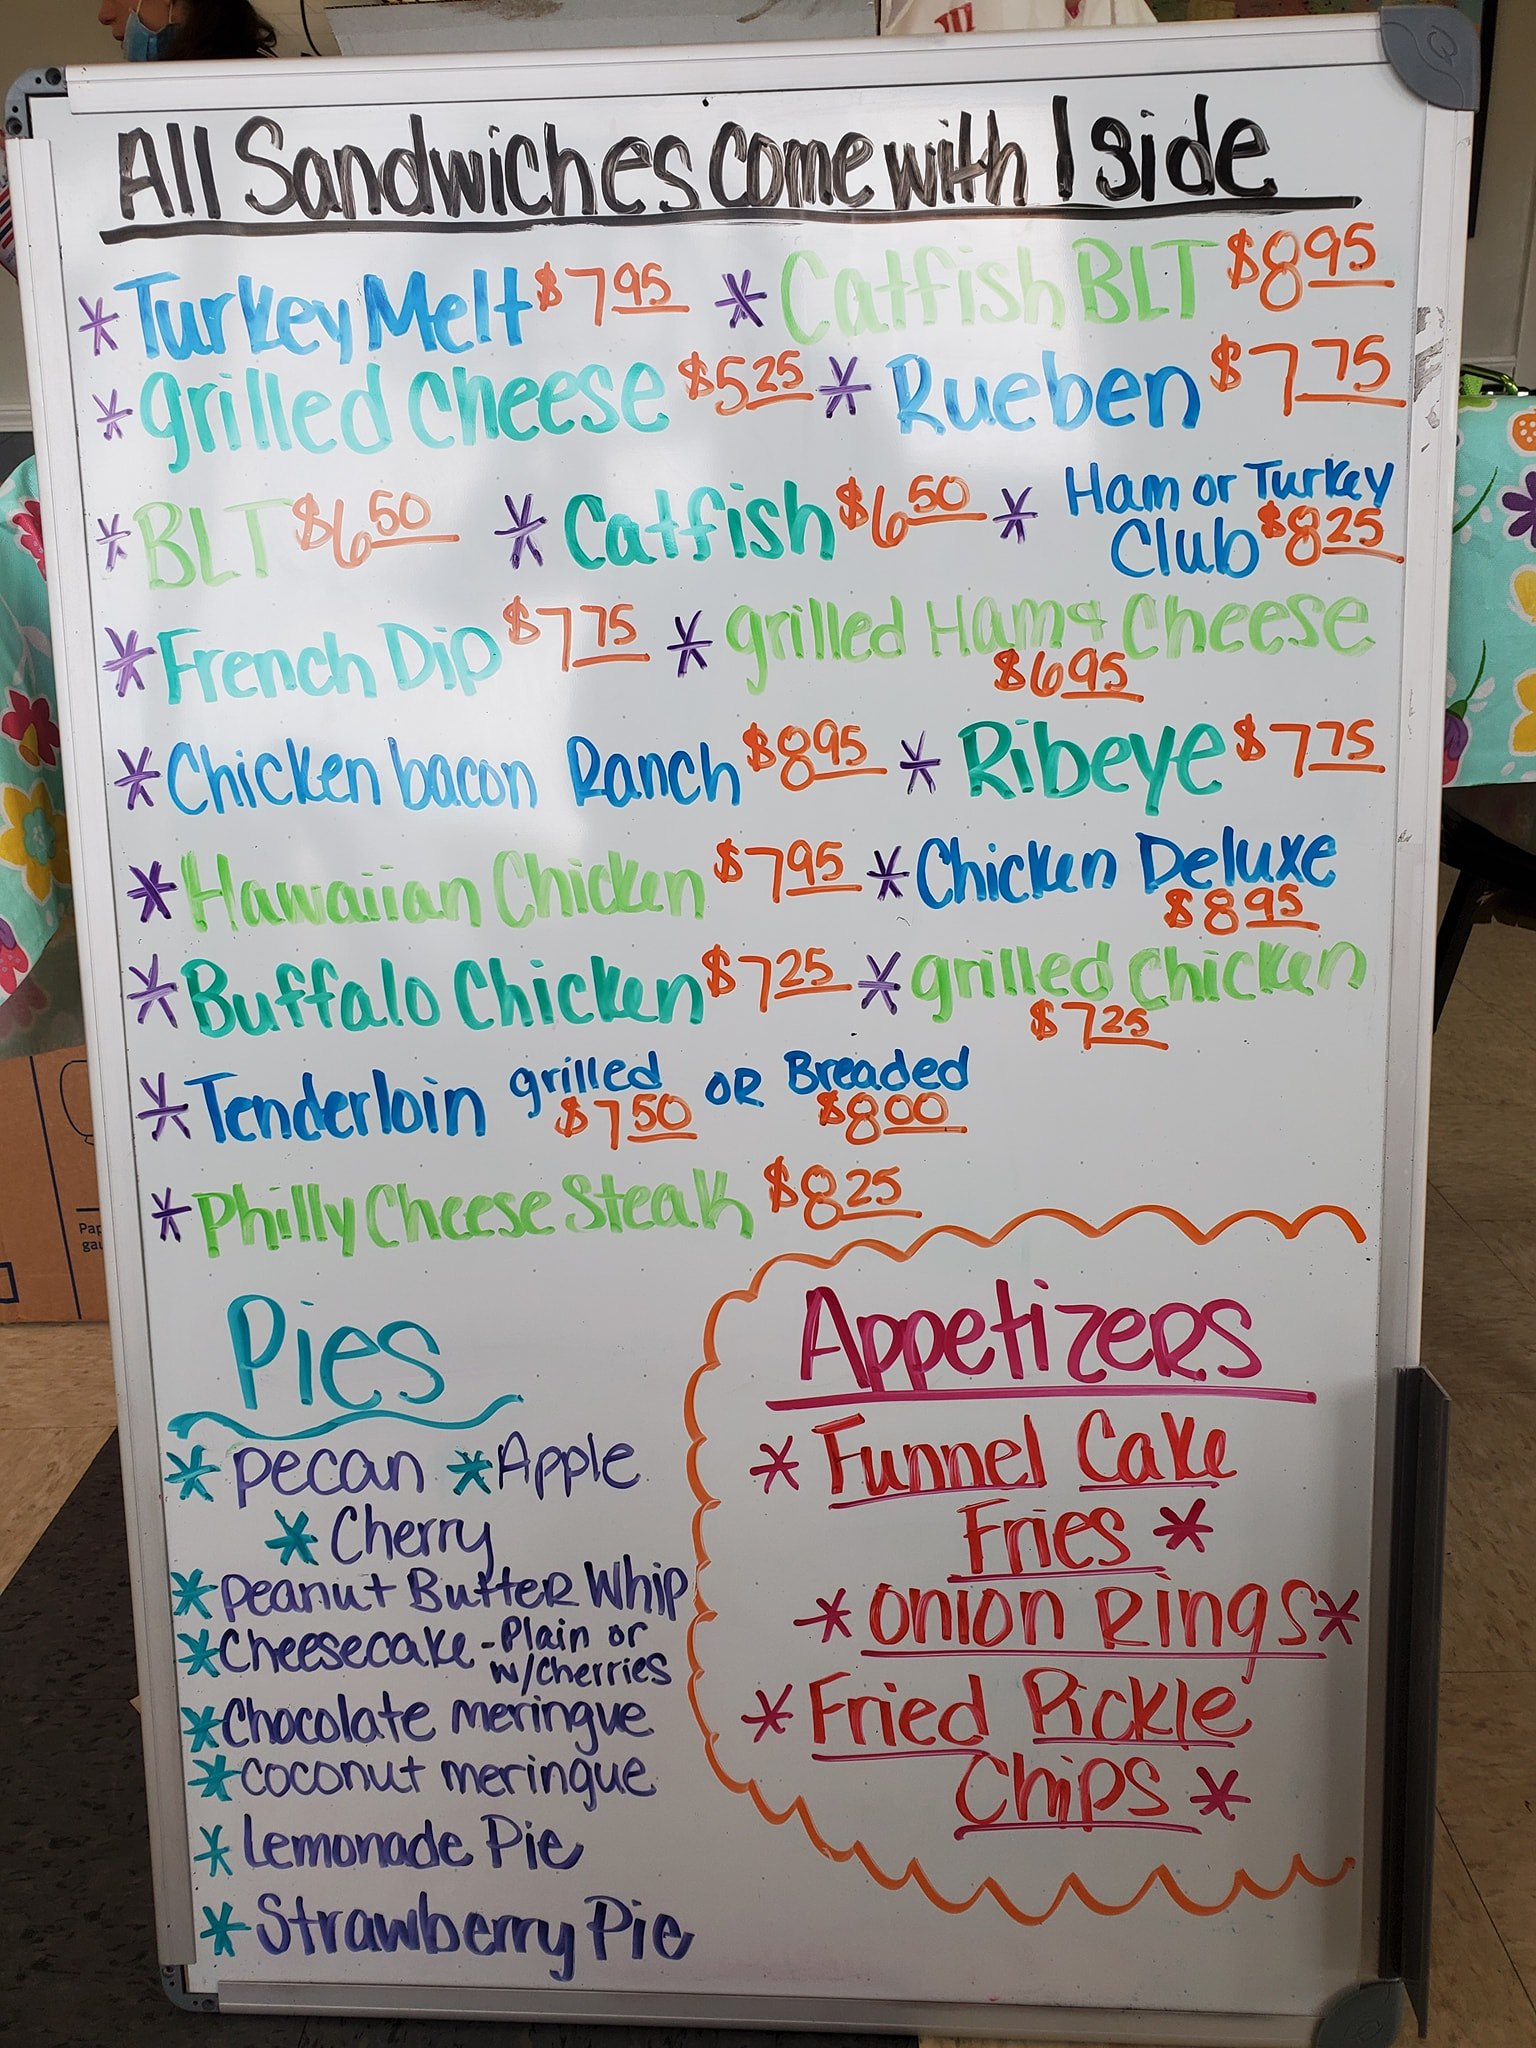 All Sandwiches come with 1 side
* Turkey Melt $7.95 * Catfish BLT $8.95
* grilled Cheese $5.25 * Rueben $7.75
* BLT $6.50 * Catfish $6.50 * Ham or Turkey Club $8.25
* French Dip $7.75 * grilled Ham & Cheese $6.95
* Chicken bacon Ranch $8.95 * Ribeye $7.75
* Hawaiian Chicken $7.95 * Chicken Deluxe $8.95
* Buffalo Chicken $7.25 * grilled Chicken $7.25
* Tenderloin grilled $7.50 OR Breaded $8.00
* Philly Cheese Steak $8.25
Pies
* pecan * Apple
* Cherry
* Peanut Butter Whip
* Cheesecake - Plain or w/cherries
* Chocolate meringue
* Coconut meringue
* Lemonade Pie
* Strawberry Pie
Appetizers
* Funnel Cake
Fries *
* Onion Rings *
* Fried Pickle
Chips *